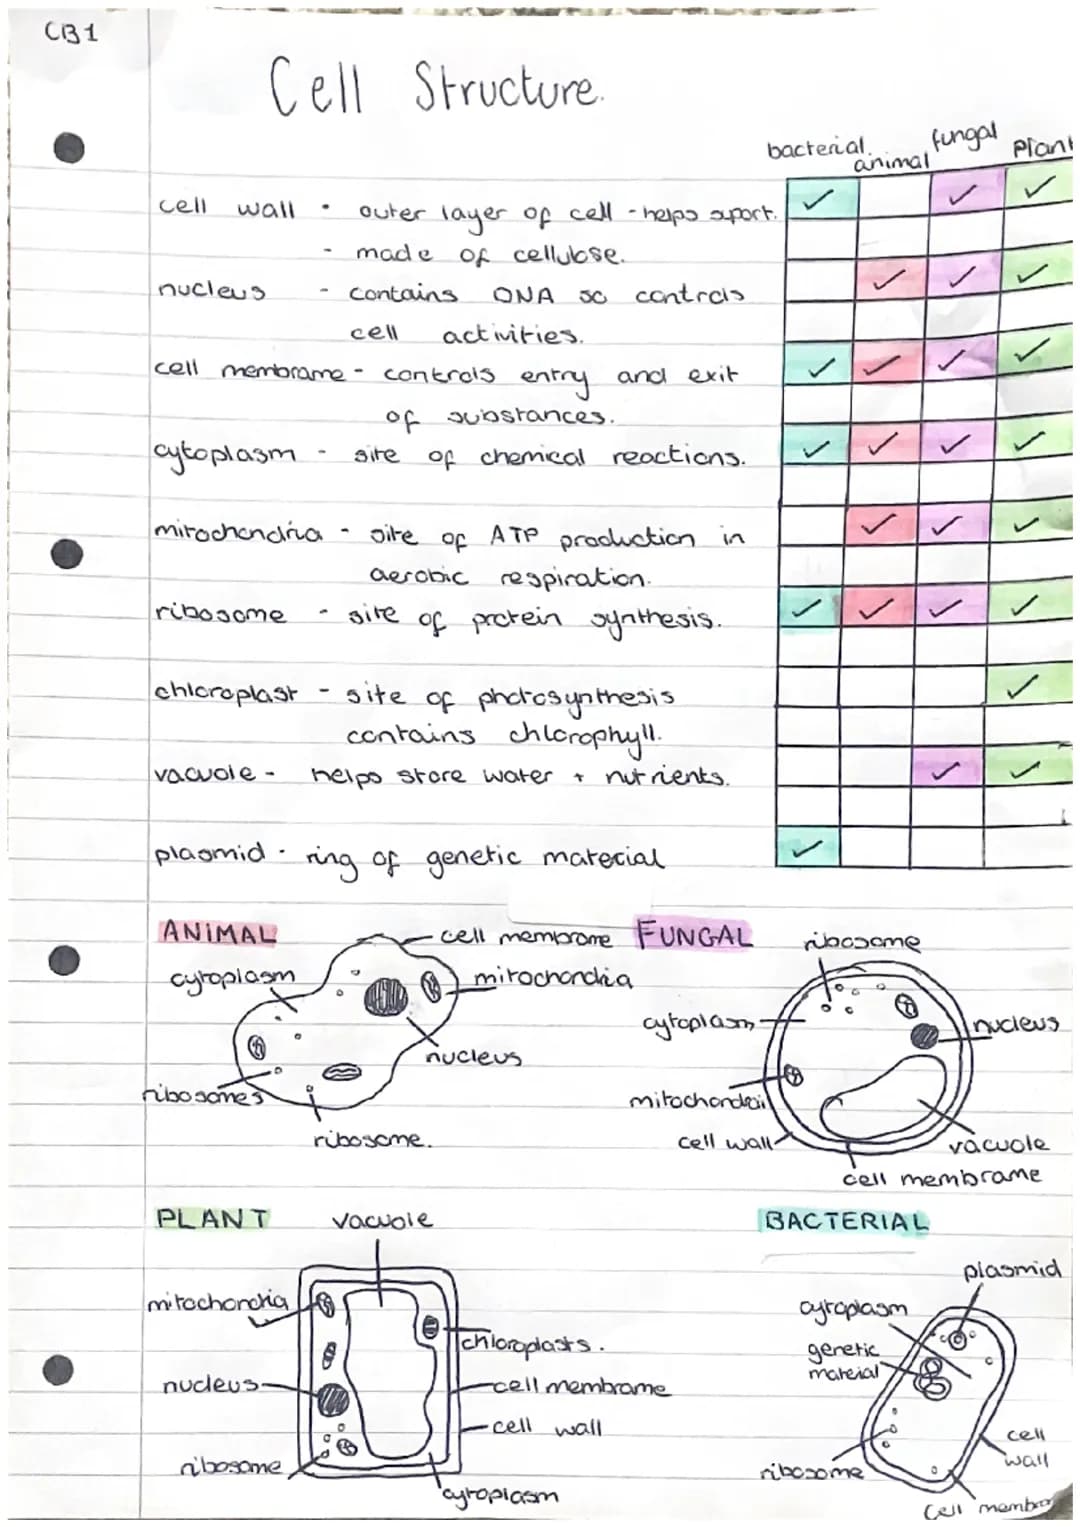 CB1
Cell Structure.
bacterial. animal fungal Plant
cell wall · outer layer of cell - helps suport.
- made of cellulose.
nucleus - contains DNA so controls
cell activities.
cell membrane - controls entry and exit
of substances.
cytoplasm - site of chemical reactions.
mitochondria - site of ATP production in
aerobic respiration.
ribosome - site of protein synthesis.
chloroplast - site of photosynthesis
contains chlorophyll.
vacuole - helps store water + nutrients.
plasmid · ring of genetic material
ANIMAL
cell membrane
cytoplasm
mitochondria
nucleus
ribosomes
ribosome.
FUNGAL
ribosome
cytoplasm
nucleus
mitochondria
cell wall
vacuole
cell membrane
PLANT
vacuole
mitochondria
chloroplasts.
nucleus
cell membrane
cell wall
ribosome
cytoplasm
BACTERIAL
plasmid
cytoplasm
genetic
mateial
cell
wall
ribosome
Cell membra